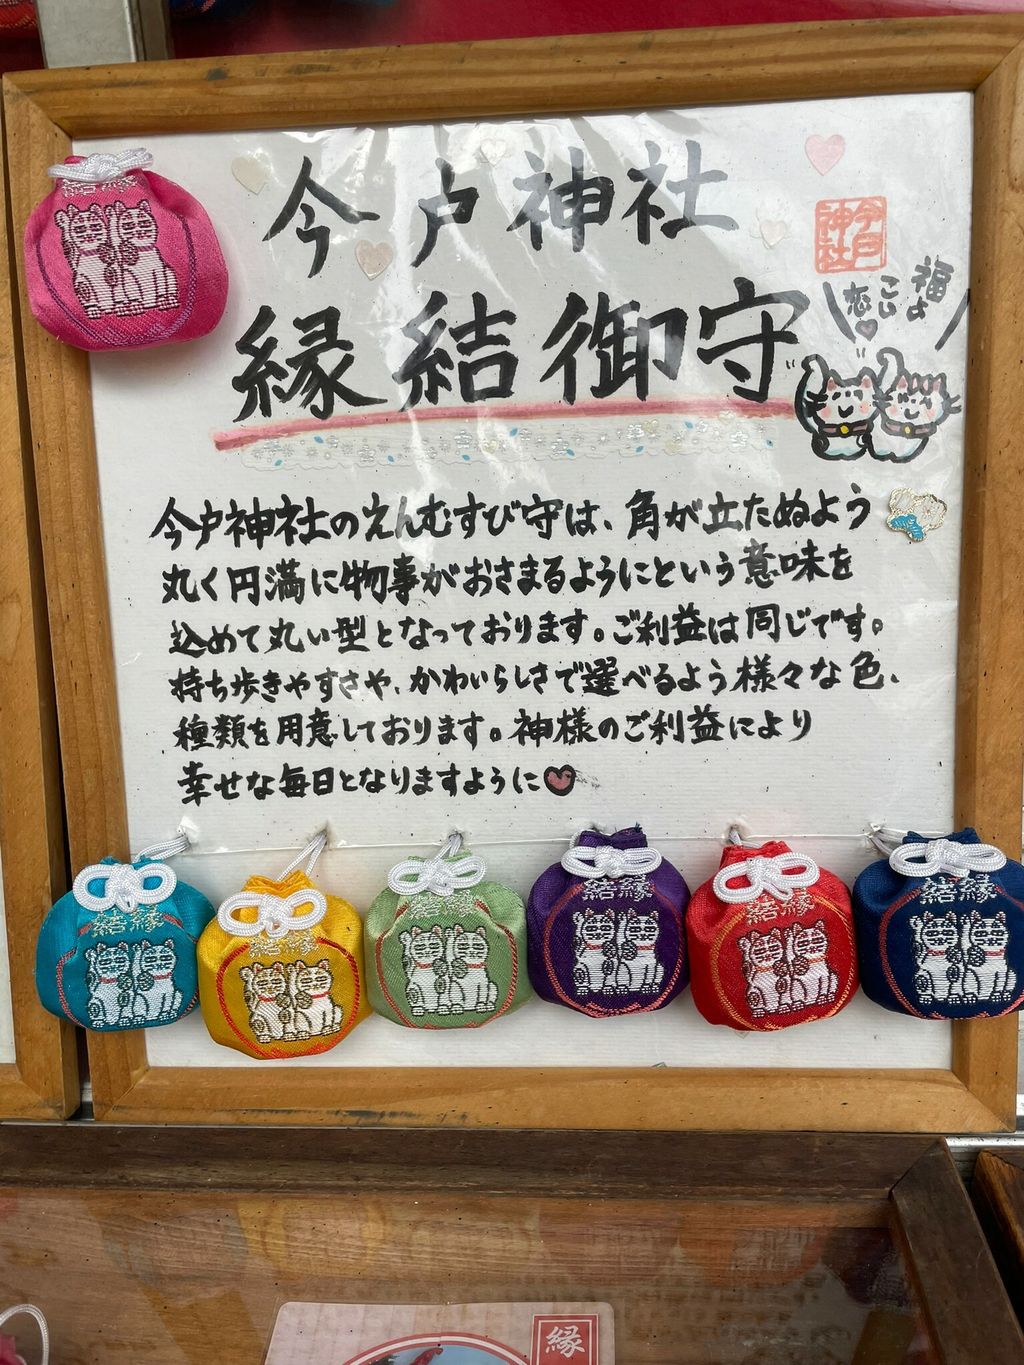 今戸神社
縁結御守
今戸神社
福よ
こい
恋
今戸神社のえんむすび守は、角が立たぬよう
丸く円満に物事がおさまるようにという意味を
込めて丸い型となっております。ご利益は同じです。
持ち歩きやすさや、かわいらしさで選べるよう様々な色、
種類を用意しております。神様のご利益により
幸せな毎日となりますように
結縁
結縁
結縁
結縁
結縁
結縁
結縁
縁